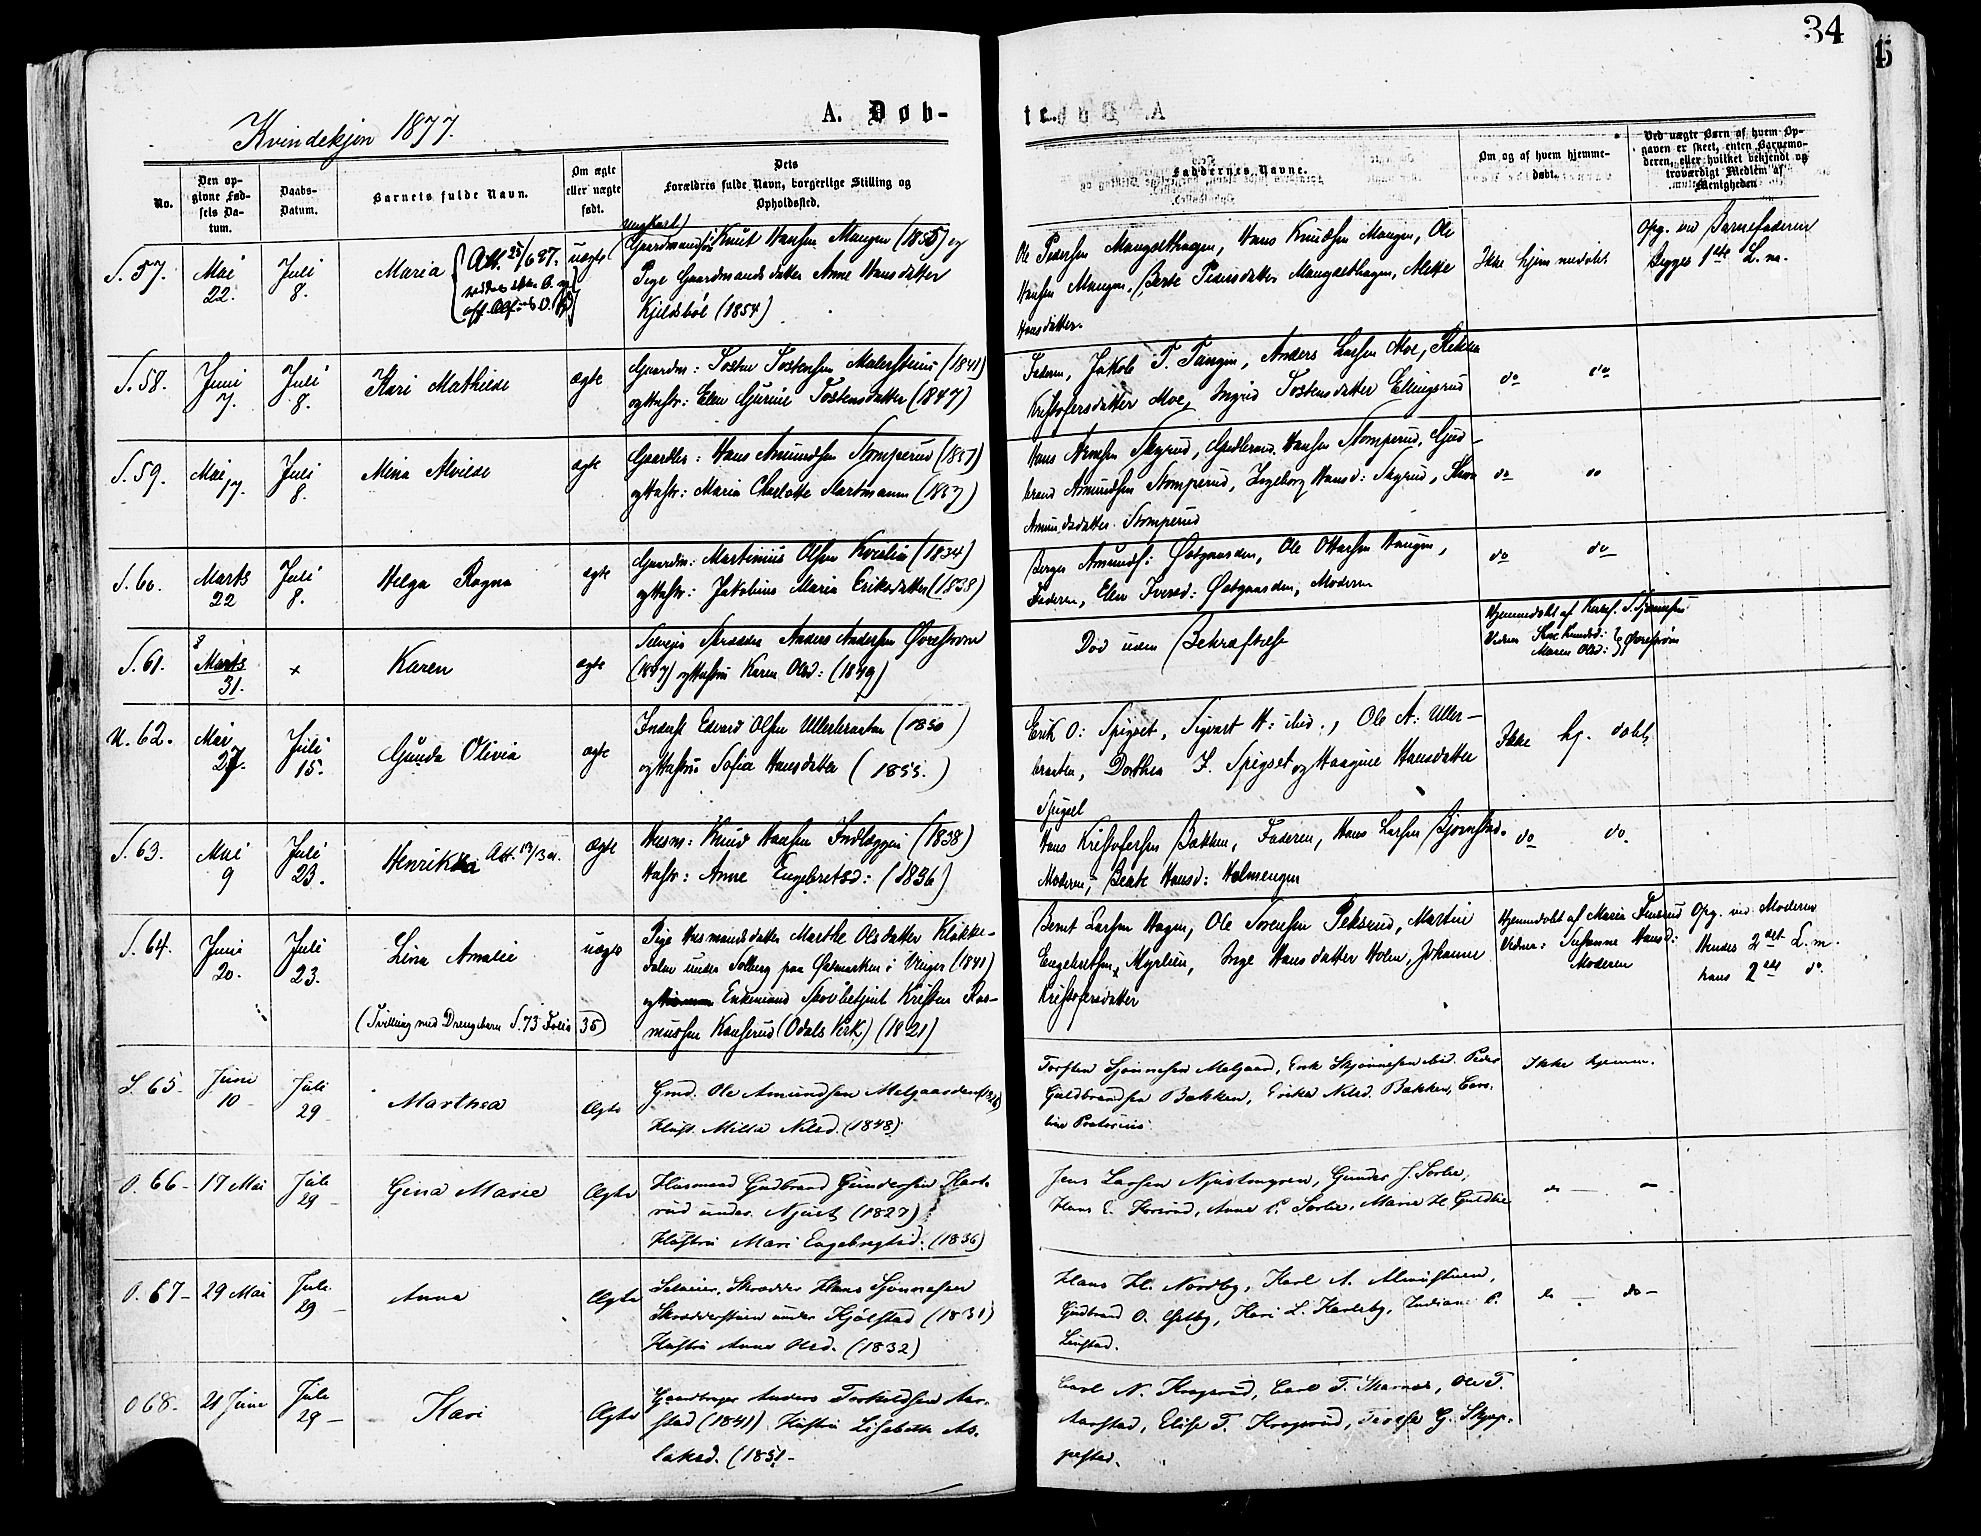 34
15
Kvindekjøn 1877.
A. Døb-
te.
No.
Den op-
givne Fød-
sels Da-
tum.
Daabs-
Datum.
Barnets fulde Navn.
Om ægte
eller uægte
født.
Dets
Forældres fulde Navn, borgerlige Stilling og
Opholdssted.
Faddernes Navne.
Om og af hvem hjemme-
døbt.
Ved uægte Børn af hvem Op-
gaven er skeet, enten Barnemo-
deren, eller hvilket bekjendt og
troværdigt Medlem af
Menigheden
S. 57.
Mai
22.
Juli
8.
Maria
Att. 25/6 27.
uægte
ungkarl
Gaardmandssøn Knut Hansen Mangen (1855) og
Pige Gaardmandsdatter Anne Hansdatter
Kjeldsbøl (1854)
Ole Pedersen Mangsethagen, Hans Knudsen Mangen, Ole
Hansen Mangen, Berte Pedersdatter Mangsethagen, Mette
Hansdatter.
Ikke hjemmedøbt
Opg. ved Barnefaderen
Begges 1ste L.m.
S. 58.
Juni
7.
Juli
8.
Kari Mathilde
ægte
Gaardm: Tosten Tostensen (1841)
og Hustr: Elen Gurine Tostensdatter (1847)
Faderen, Jakob T. Tangen, Anders Larsen Moe, Rikka
Kristofersdatter Moe, Ingrid Tostensdatter Ellingsrud
do
do
S. 59.
Mai
17.
Juli
8.
Mina Alvilde
ægte
Hans Amundsen Stomperud (1857)
og Hustr: Maria Charlotte Hartmann (1857)
Hans Arnesen Skyrud, Hansen Stomperud, Gud-
brand Amundsen Stomperud, Ingeborg Hansd: Skyrud,
Amundsdatter Stomperud
do
do
S. 60.
Marts
22
Juli
8.
Helga Ragna
ægte
Gaardm: Martinius Olsen Kværlia (1834)
og Hustr: Jakobine Maria Eriksdatter (1838)
Berger Amunds: Østgaarden, Ole Ottersen Haugen,
Faderen, Elen Iversd: Østgaarden, Moderen
do
do
S. 61.
Marts
31.
x
Karen
ægte
Selvejer Skrædder Anders Andersen Øvrestrøm
(1847) og Hustru Karen Olsd: (1849)
Død uden Bekræftelse
Hjemmedøbt af Kirkes. S. Sjønnesen
Vidner Knudsd:
Maren Olsd: } Øvrestrøm
U. 62.
Mai
27.
Juli
15.
Gunda Olivia
ægte
Inderst Edvard Olsen Ullerbraaten (1850)
og Hustru Sofia Hansdatter (1855.)
Erik O: Spigset, Sigvart H: ibid:, Ole A: Uller-
braaten, Dorthea I. Spigset og Haagine Hansdatter
Spigset
Ikke hj. døbt.
S. 63.
Mai
9
Juli
23.
Henrikka
Ægte
Husm: Knud Hansen Indlæggen (1838)
Hustr: Anne Engebretsd: (1836)
Hans Kristofersen Bakken, Faderen, Hans Larsen Bjørnstad,
Moderen, Beate Hansd: Holmengen
do
do.
S. 64.
Juni
20.
Juli
23.
Lina Amalie
(Tvilling med Drengebarn S. 73 Folio 35)
uægte
Pige Husmandsdatter Marthe Olsdatter Klokke-
dalen under Solberg paa Østmarken i Urnger (1841)
og Enkemand Skovbetjent Kristen Ras-
mussen Kanserud (Odals Kirk) (1821)
Bernt Larsen Hagen, Ole Sørensen Peksrud, Martin
Engebretsen Myrlien, Inge Hansdatter Holm, Johanne
Kristofersdatter
Hjemmedøbt af Maria Finsrud
Vidner: Susanne Hansd:
Moderen
Opg. ved Moderen
Hendes 2det L.m.
hans 2det do
S. 65.
Juni
10
Juli
29
Marthea
Ægte
Gmd. Ole Amundsen Melgaarden
Hust. Milla Nilsd. (1848)
Torsten Sjønnesen Melgaard, Erik Skjønnesen ibid. Peder
Guldbrandsen Bakken, Erika Nilsd. Bakken, Caro-
line Pratorius
Ikke hjemm.
O. 66
17 Mai
Juli
29
Gina Marie
Ægte
Husmand Gudbrand Gundersen Hort-
rud under Njust (1827)
Hustru Mari Engebregtsd: (1836)
Jens Larsen Njustmyren, Gunder J. Sorlie,
Hans E. Horsrud, Anne P. Sorlie, Marie H. Guldlie
do
do
O. 67
29 Mai
Juli
29
Anna
Ægte
Selveier, Skrædder Hans Sjønnesen
Skrædderstuen under Kjølstad (1831)
Hustru Anne Olsd. (1832)
Hans Hl. Nordby, Karl A. Almistuen,
Gudbrand O. Østby, Kari L. Karlsby, Indiane P.
Linstad.
do
do
O 68.
21 Juni
Juli
29
Kari
Ægte
Gaardbruger Anders Torkildsen Aar-
stad (1841) Hustru Lisabeth As-
laksd. (1851
Carl N. Kragsrud, Carl T. Skarnes, Ole T.
Aarstad, Elise T. Kragsrud, G. Skjep-
pestad.